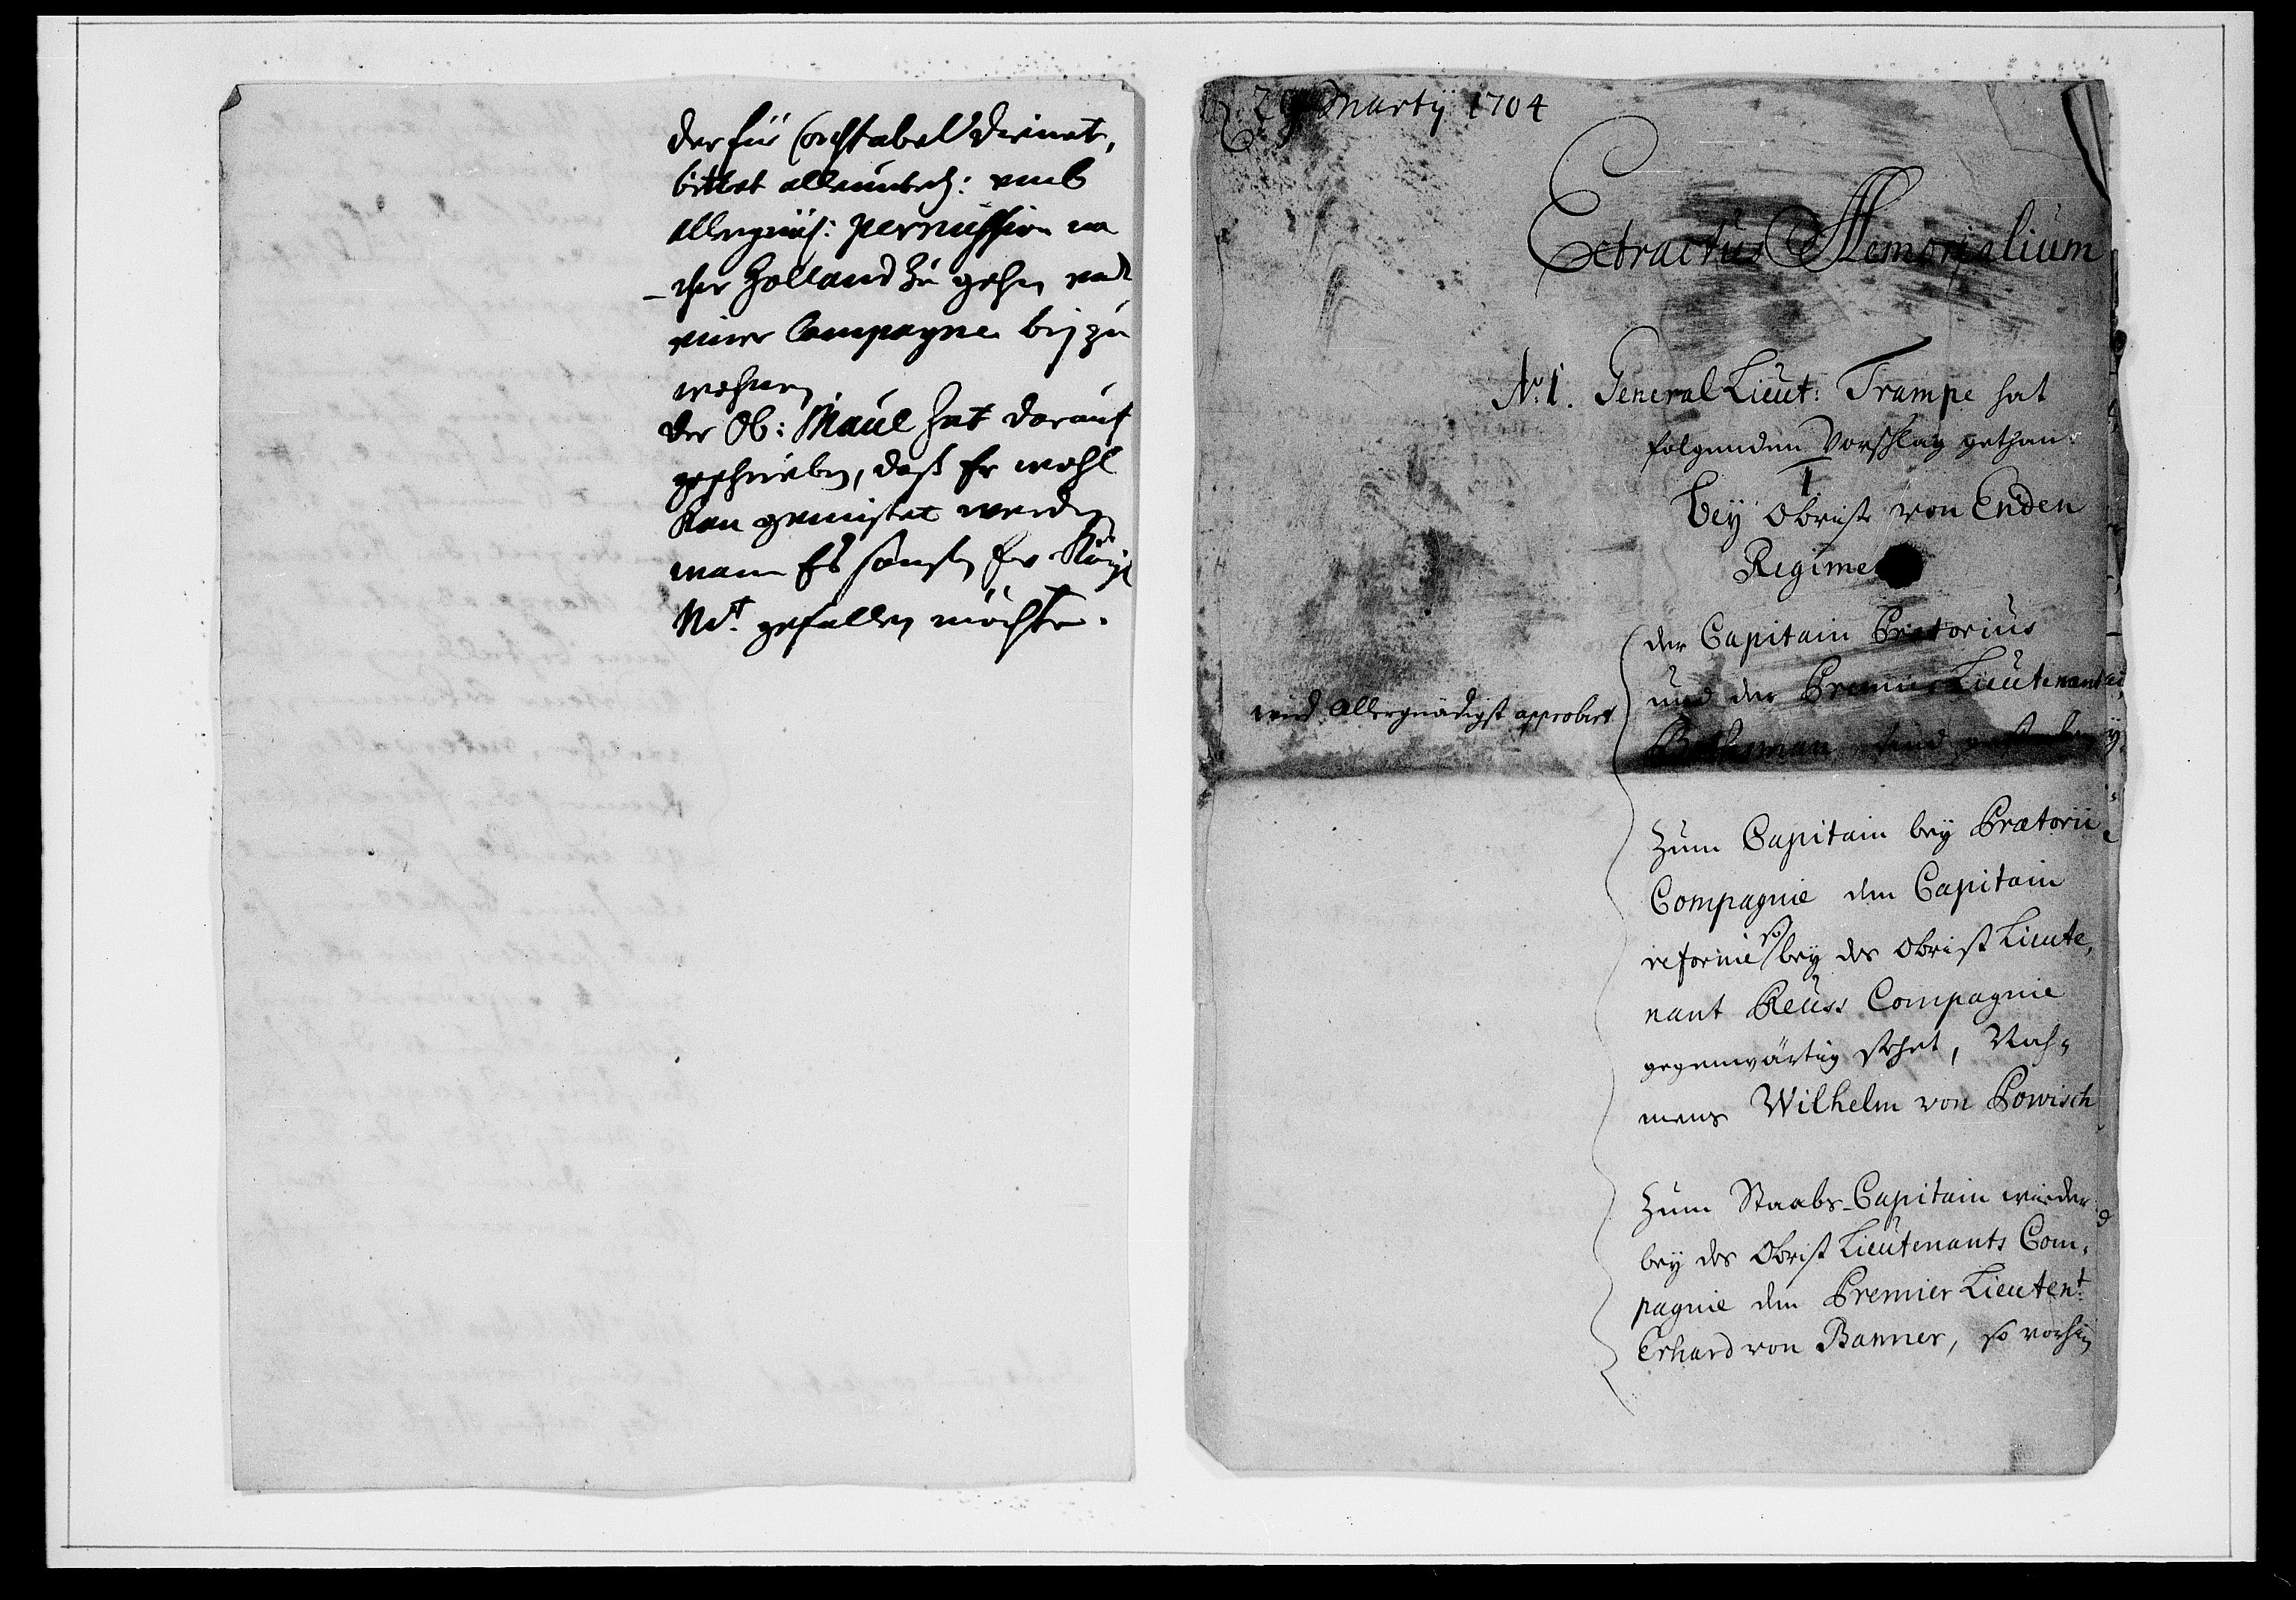 der für Constabel dienet,
bittet allerunterth: umb
allergnäst: permission na
-cher Holland zu gehn undt
einer Campagne bej zu
wohnen
der Ob: Maul hat darauf
geschrieben, daß Er wohl
kan gemistet werden
wann Es sonsten Ew Königl
Mtt. gefallen möchte.
29 Martij 1704
Extractus Memorialium
No. 1. General Lieut: Trampe hat
folgenden Vorschlag gethan:
1
bey Obrist von Enden
Regime
der Capitain Prætorius
und der Premier Lieutenant
sind
wird allergnädigst approbirt
Zum Capitain bey Prætorii
Compagnie den Capitain
reformé so bey des Obrist Lieute,
nant Reuss Compagnie
gegenwärtig stehet, Nah-
mens Wilhelm von Powisch
Zum Staabs-Capitain wieder
bey des Obrist Lieutenants Com,
pagnie den Premier Lieutent.
Erhard von Banner, so vorhin